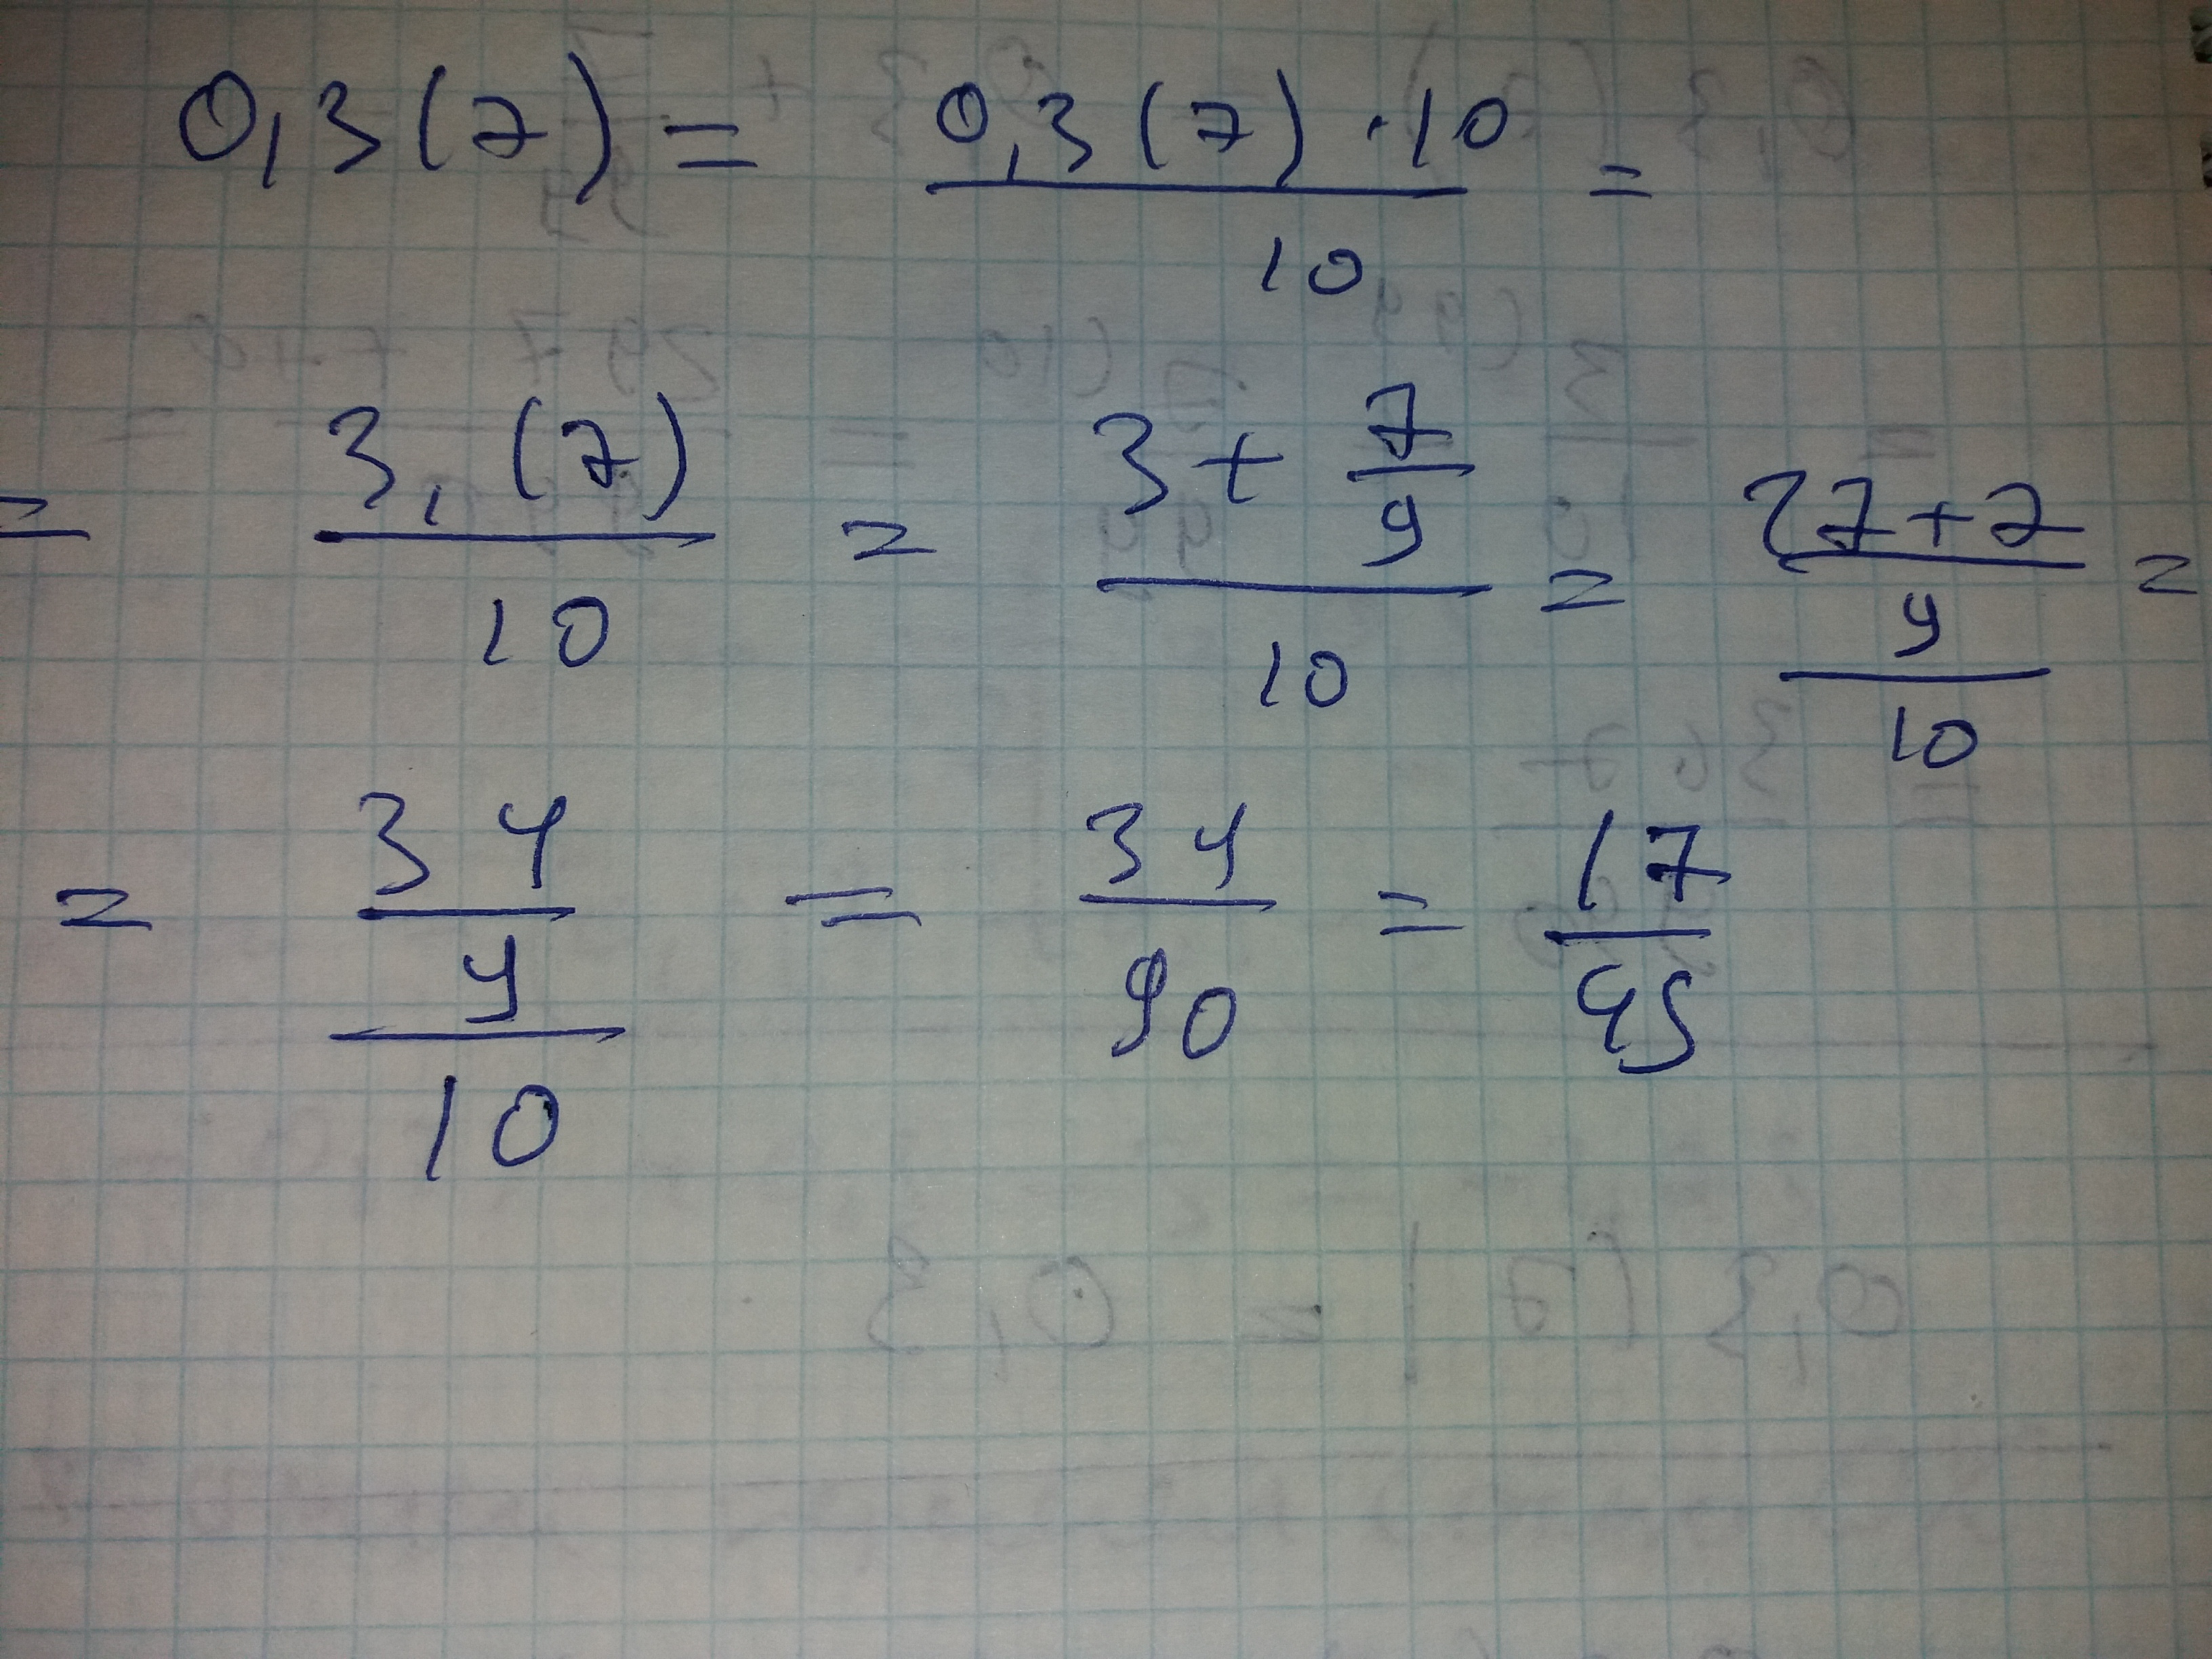 0,3(7) = 0,3(7)·10/10 =
= 3,(7)/10 = (3 + 7/9)/10 = ((27+7)/9)/10 =
= (34/9)/10 = 34/90 = 17/45